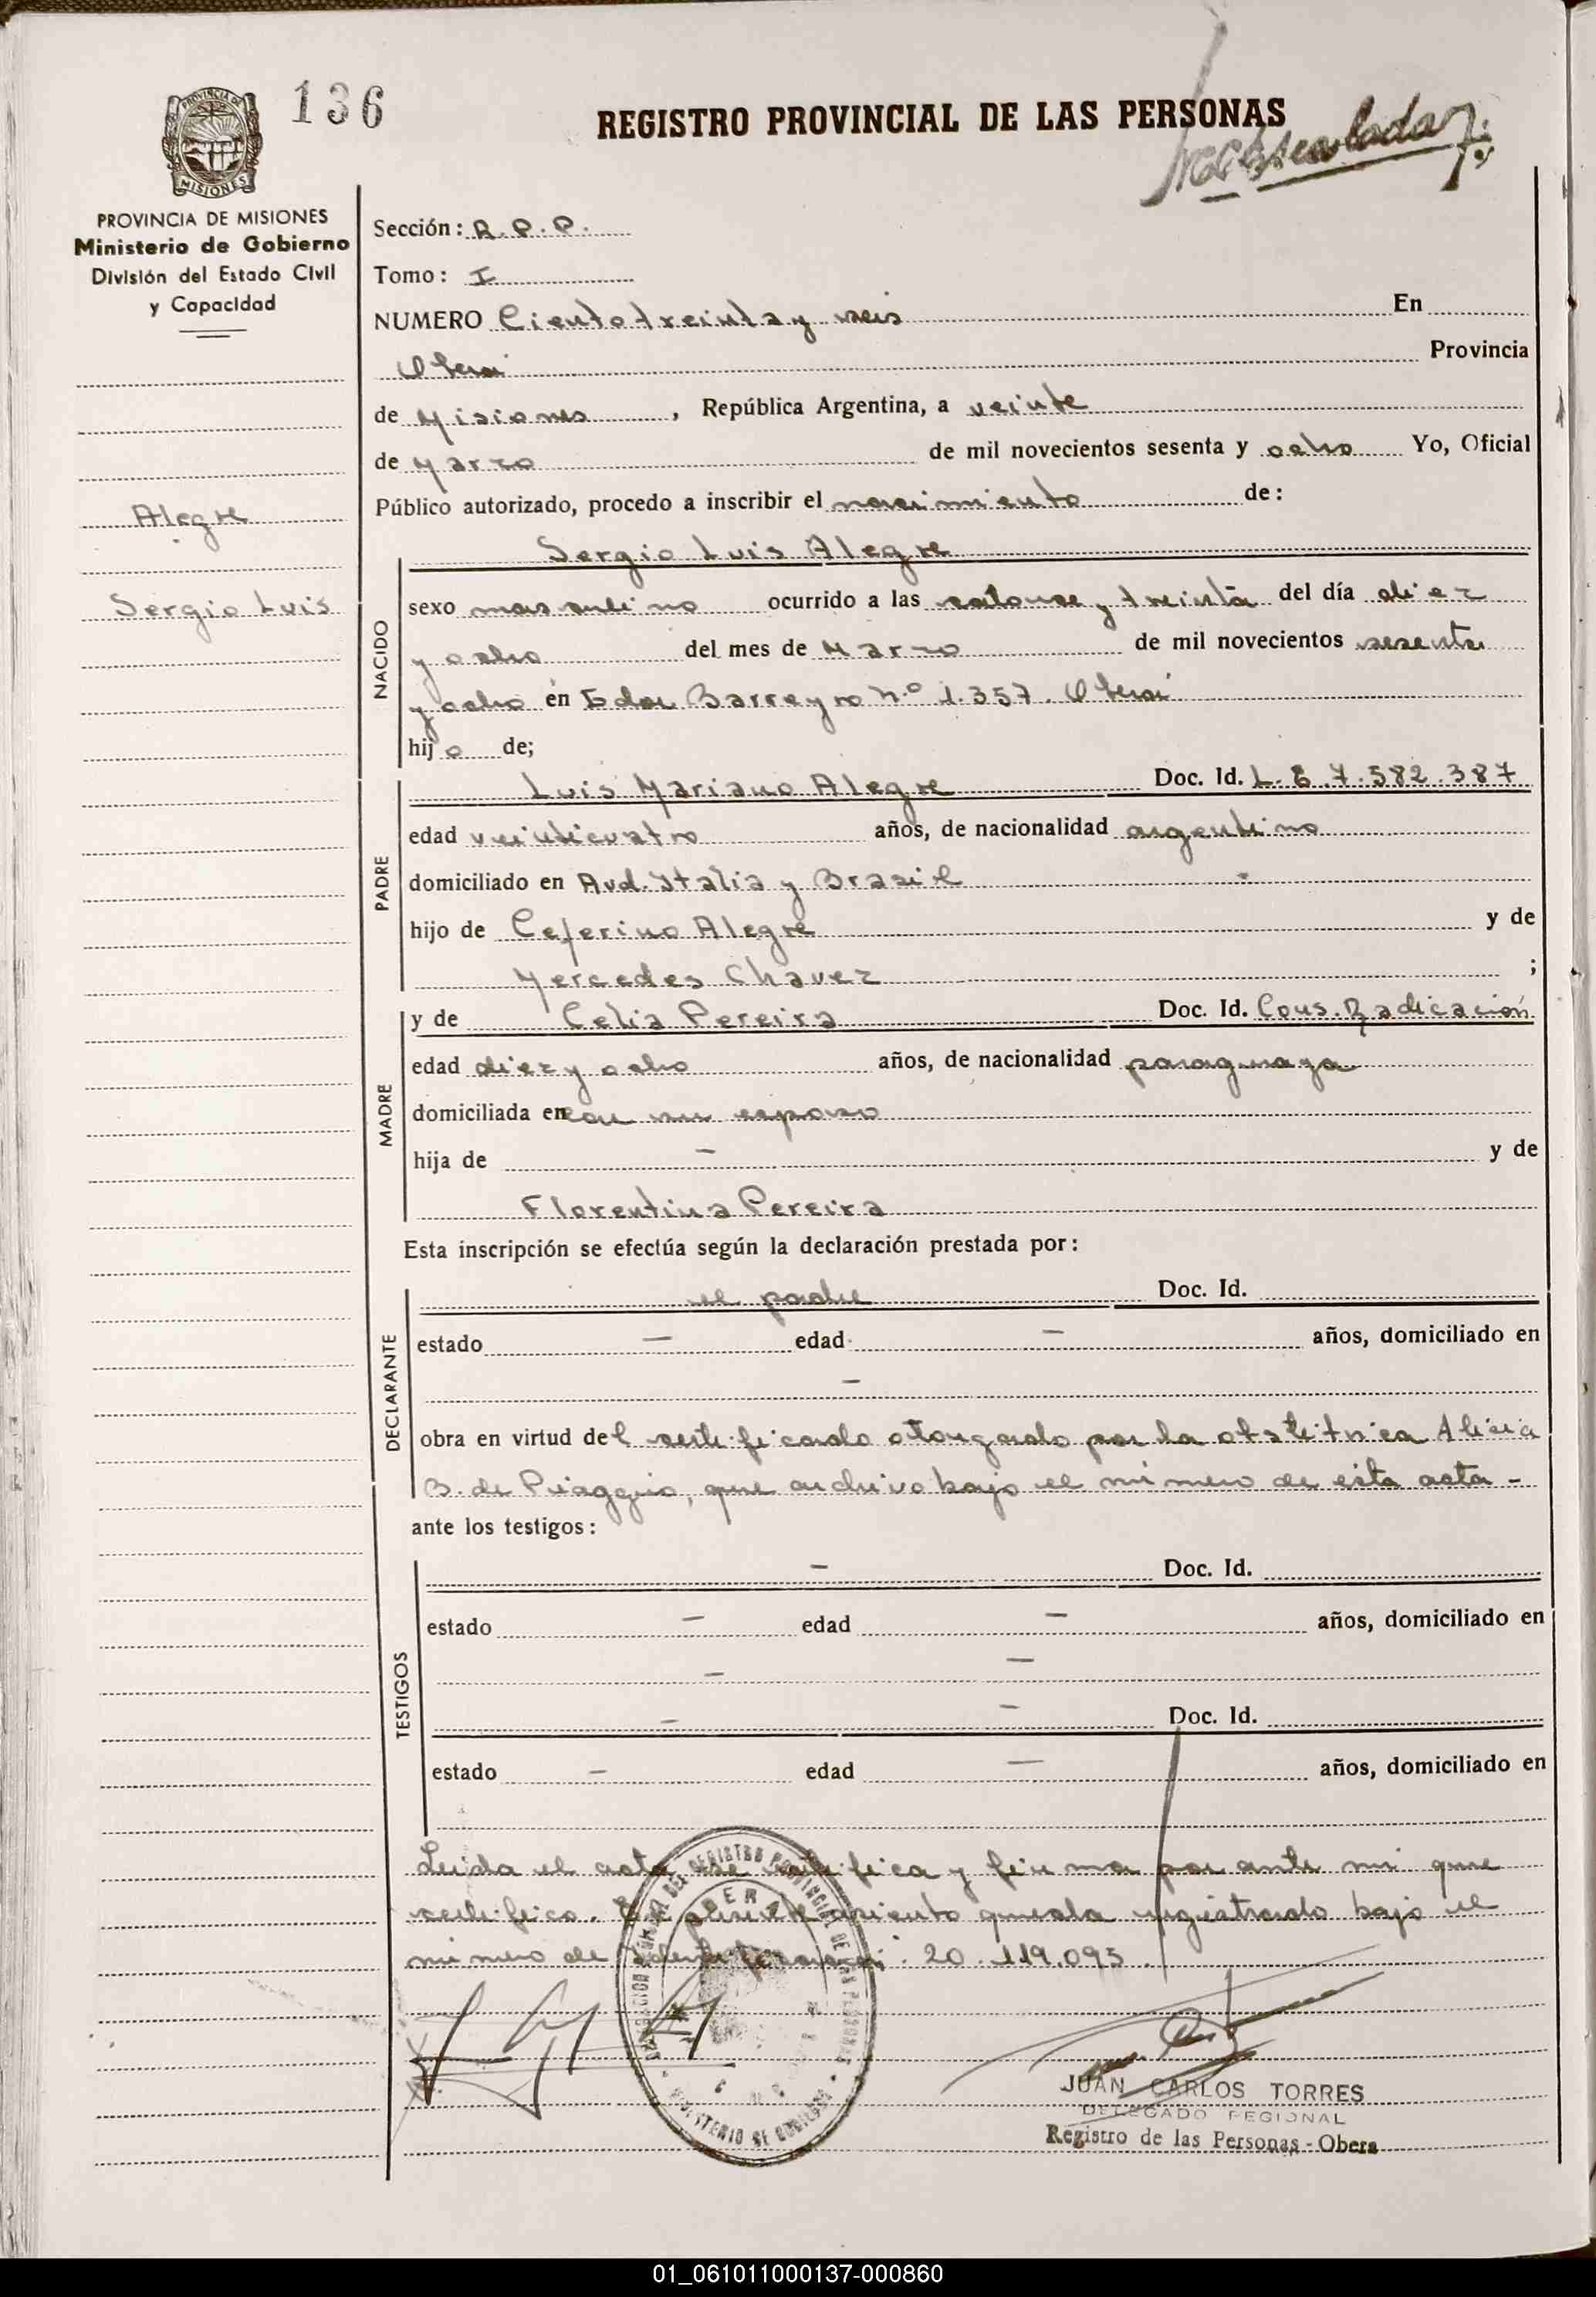 136
REGISTRO PROVINCIAL DE LAS PERSONAS
PROVINCIA DE MISIONES
Ministerio de Gobierno
División del Estado Civil
y Capacidad
Alegre
Sergio Luis
Sección: R.P.P.
Tomo: I
NUMERO Ciento treinta y seis En
Oberá Provincia
de Misiones, República Argentina, a veinte
de Marzo de mil novecientos sesenta y ocho Yo, Oficial
Público autorizado, procedo a inscribir el nacimiento de:
NACIDO
Sergio Luis Alegre
sexo masculino ocurrido a las catorce y treinta del día diez
y ocho del mes de Marzo de mil novecientos sesenta
y ocho en Edor Barreyro n.º 1.357. Oberá
hijo de;
PADRE
Luis Mariano Alegre Doc. Id. L.E 7.582.387
edad veinticuatro años, de nacionalidad argentino
domiciliado en Avd. Italia y Brasil
hijo de Ceferino Alegre y de
Mercedes Chavez ;
MADRE
y de Celia Pereira Doc. Id. Cons. Radicación
edad diez y ocho años, de nacionalidad paraguaya
domiciliada en con su esposo
hija de - y de
Florentina Pereira
Esta inscripción se efectúa según la declaración prestada por:
DECLARANTE
el padre Doc. Id.
estado - edad - años, domiciliado en
-
obra en virtud del certificado otorgado por la obstétrica Alicia
B. de Piaggio, que archivo bajo el número de esta acta -
ante los testigos:
TESTIGOS
- Doc. Id.
estado - edad - años, domiciliado en
- -
- - Doc. Id.
estado - edad - años, domiciliado en
Leída el acta se ratifica y firma por ante mi que
certifico. El presente asiento queda registrado bajo el
número de identificación: 20.119.095
JUAN CARLOS TORRES
DELEGADO REGIONAL
Registro de las Personas - Obera
01_061011000137-000860